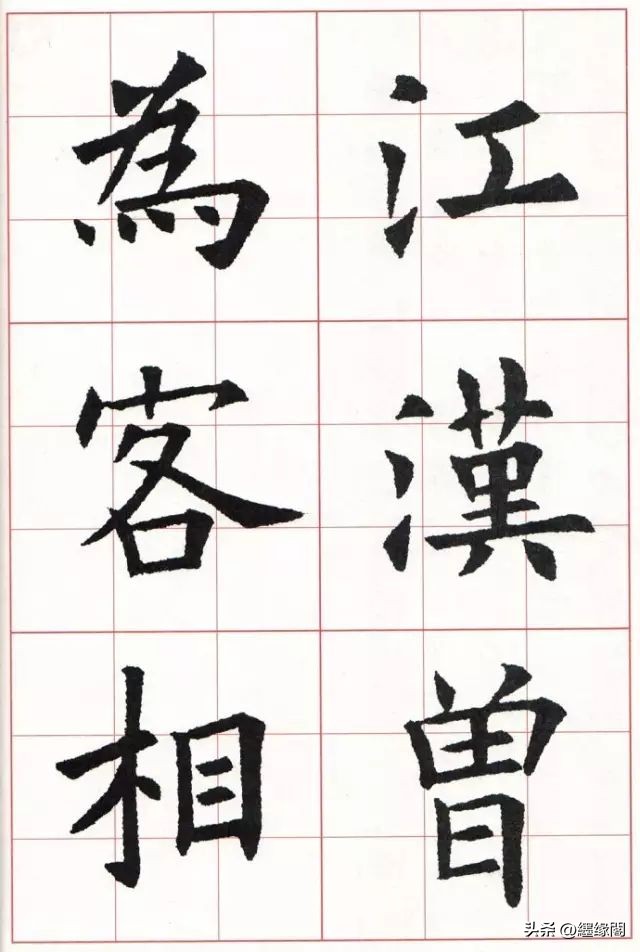 江漢曾
為客相
头条 @纆缘閣